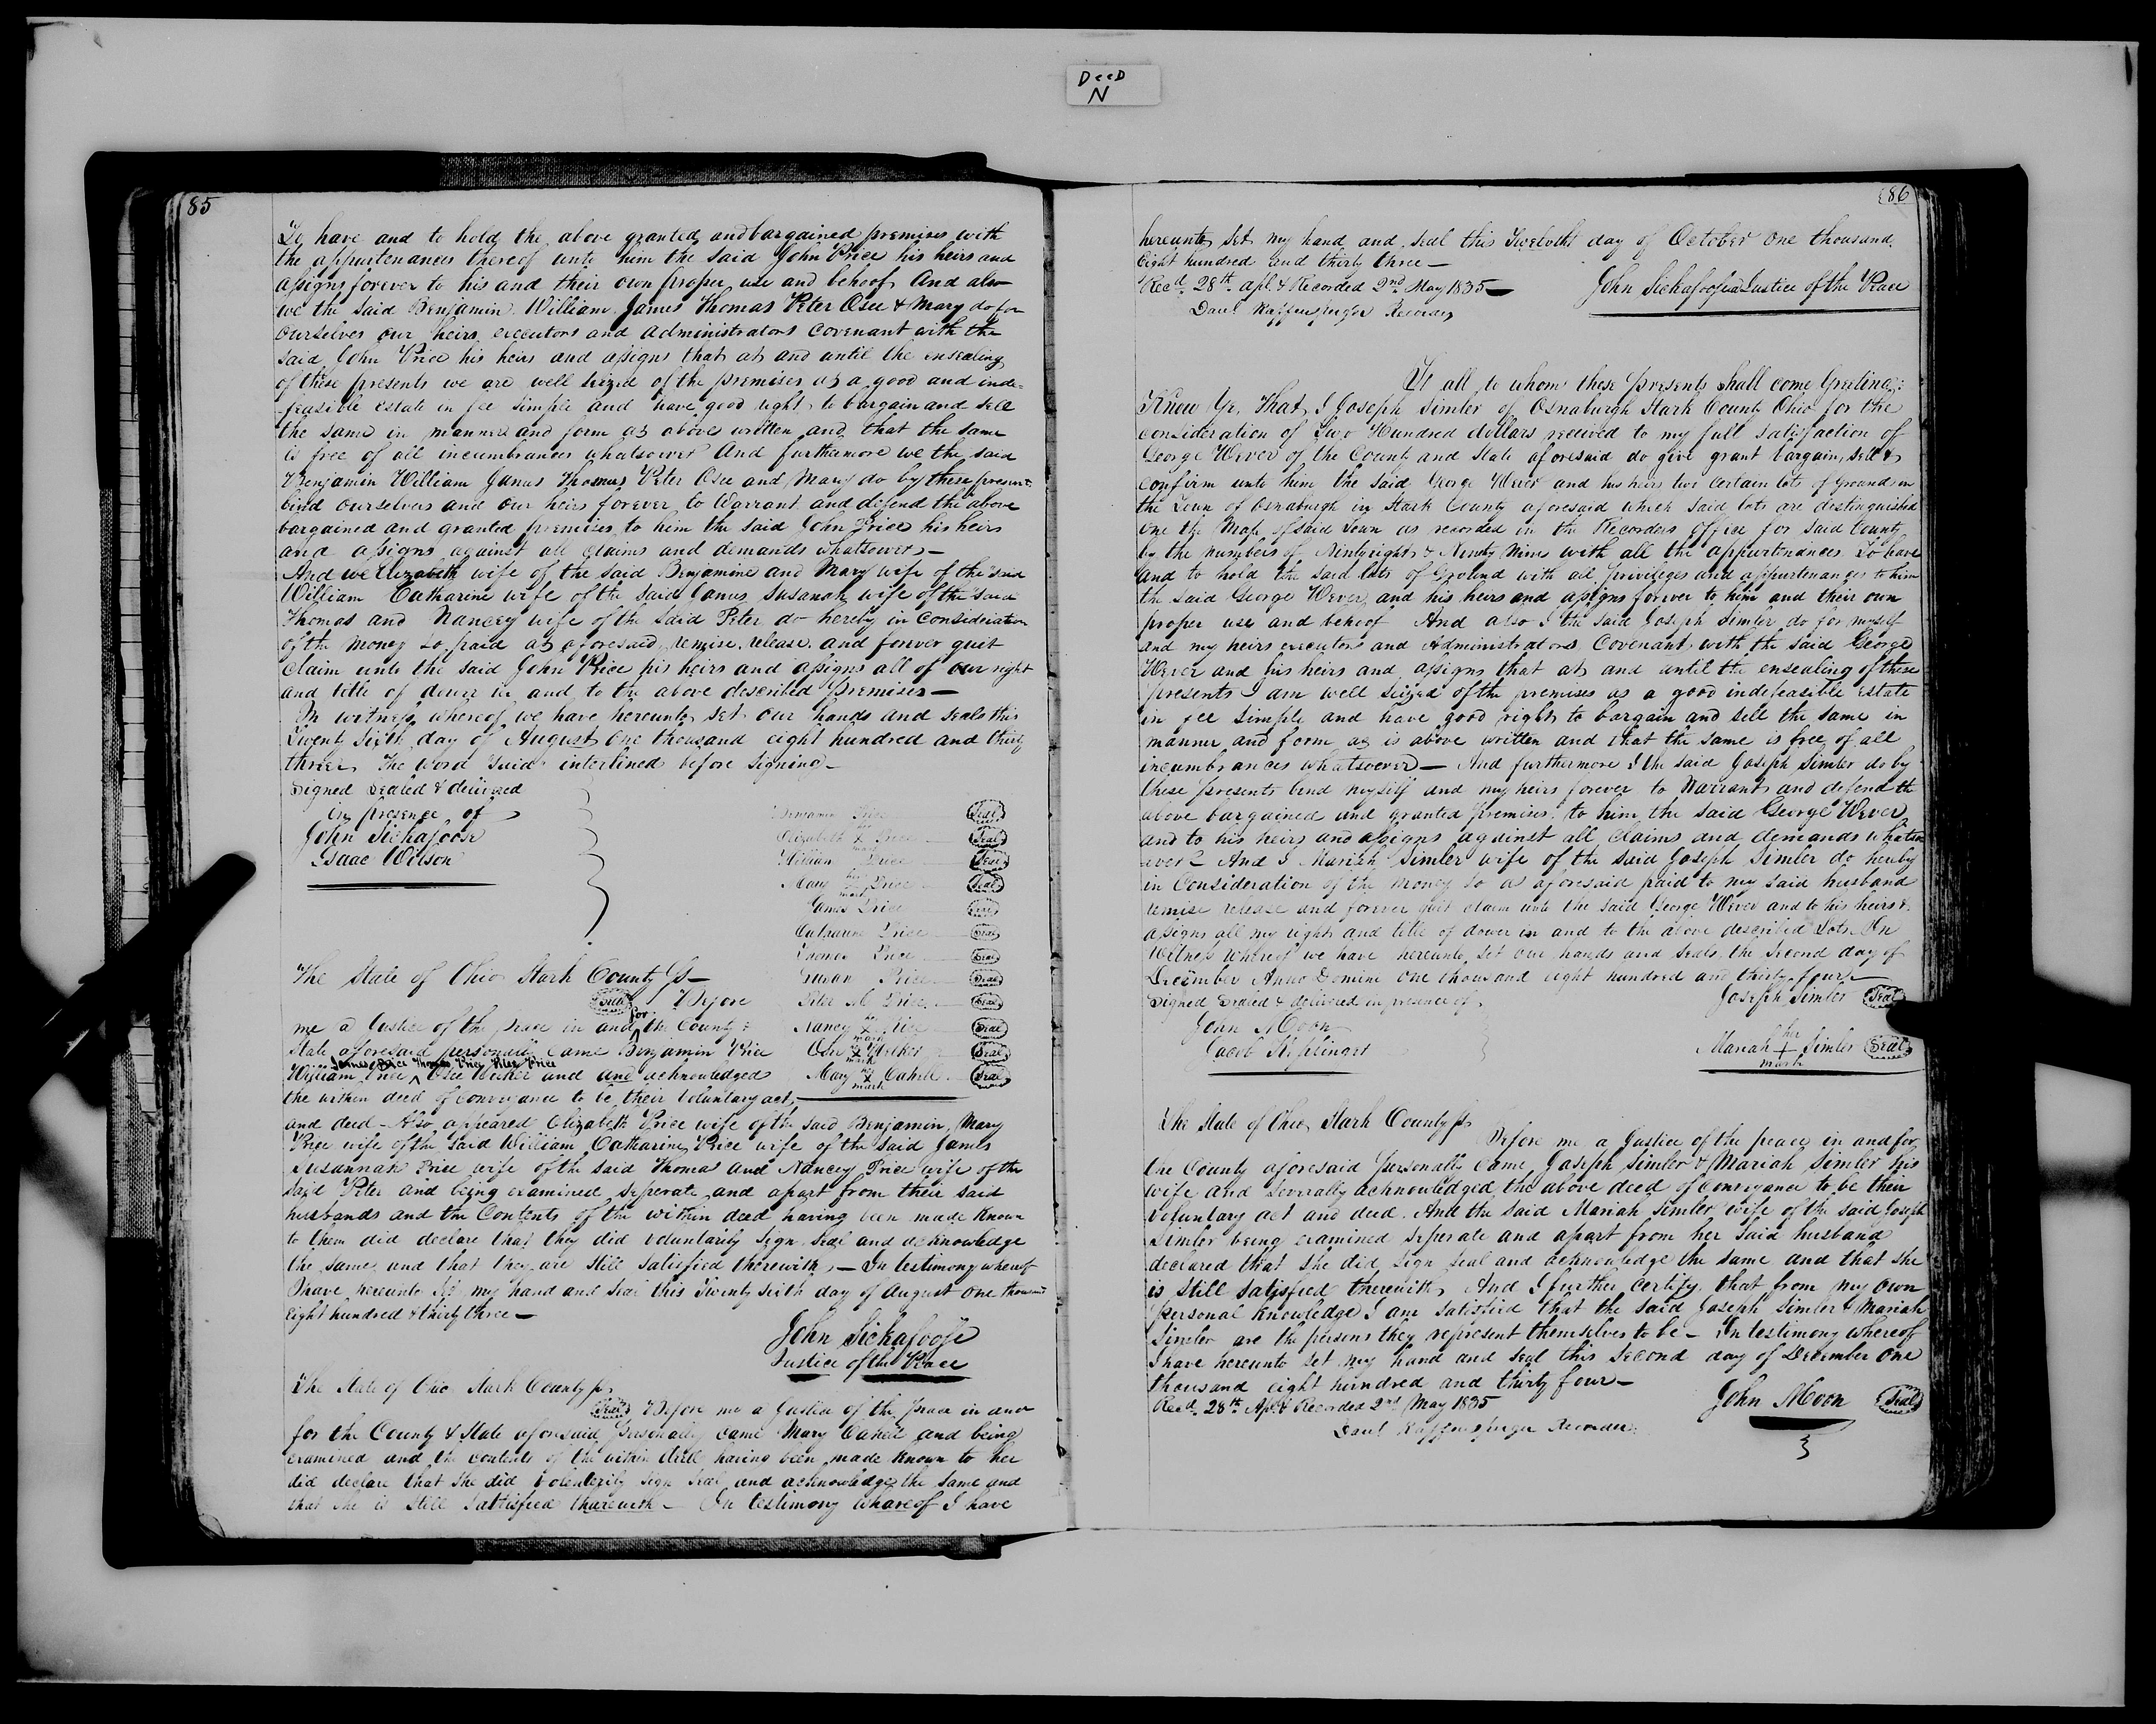 DeeD
N
85
To have and to hold the above granted and bargained premises with
the appurtenances thereof unto him the said John Price his heirs and
assigns forever to his and their own proper use and behoof And also
we the said Benjamin William James Thomas Peter Osee & Mary do for
ourselves our heirs executors and administrators covenant with the
said John Price his heirs and assigns that at and until the ensealing
of these presents we are well seized of the premises as a good and inde-
feasible estate in fee simple and have good right to bargain and sell
the same in manner and form as above written and that the same
is free of all incumbrances whatsoever And furthermore we the said
Benjamin William James Thomas Peter Osee and Mary do by these presents
bind ourselves and our heirs forever to Warrant and defend the above
bargained and granted premises to him the said John Price his heirs
and assigns against all claims and demands whatsoever —
And we Elizabeth wife of the said Benjamine and Mary wife of the said
William Catharine wife of the said James Susanah wife of the said
Thomas and Nancey wife of the said Peter do hereby in consideration
of the money so paid as aforesaid, remise, release, and forever quit
claim unto the said John Price his heirs and assigns all of our right
and title of dower in and to the above described premises —
In witness whereof we have hereunto set our hands and seals this
Twenty Sixth day of August One thousand eight hundred and thirty
three. The word said interlined before signing —
Signed Sealed & delivered
in presence of
John Sickafoose
Isaac Wilson
Benjamin Price Seal
Elizabeth X Price Seal
William Price Seal
Mary her X mark Price Seal
James Price Seal
Catharine Price Seal
Thomas Price Seal
Susan Price Seal
Peter M Price Seal
Nancy her X mark Price Seal
Osee her X mark Welker Seal
Mary her X mark Cahill Seal
The State of Ohio Stark County Ss —
Seal Before
me a Justice of the peace in and for the County &
State aforesaid personally came Benjamin Price
William Price James Price Thomas Price Peter Price Osee Welker and and acknowledged
the within deed of conveyance to be their voluntary act
and deed — Also appeared Elizabeth Price wife of the said Benjamin, Mary
Price wife of the said William, Catharine Price wife of the said James
Susannah Price wife of the said Thomas and Nancey Price wife of the
said Peter and being examined seperate and apart from their said
husbands and the Contents of the within deed having been made known
to them did declare that they did voluntarily sign seal and acknowledge
the same and that they are still satisfied therewith, — In testimony whereof
I have hereunto set my hand and seal this Twenty sixth day of August one thousand
Eight hundred & thirty three —
John Sickafoose
Justice of the Peace
The State of Ohio Stark County ss
Seal Before me a Justice of the peace in and
for the County & State aforesaid personally came Mary Cahill and being
examined and the contents of the within deed having been made known to her
did declare that she did volenterily sign seal and acknowledge the same and
that she is still sattisfied tharewith — In testimony whareof I have
86
hereunto set my hand and seal this Twelvth day of October One thousand
Eight hundred and thirty three —
Recd. 28th. Apl. & Recorded 2nd May 1835 —
John Sickafoose Justice of the Peace
Danl Raffensperger Recorder
To all to whom these presents Shall come Greeting:
Know Ye, That I Joseph Simler of Osnaburgh Stark County Ohio for the
consideration of Two Hundred dollars received to my full satisfaction of
George Wever of the County and State aforesaid do give grant bargain, sell &
confirm unto him the said George Wever and his heirs two certain lots of ground in
the Town of Osnaburgh in Stark County aforesaid which said lots are distinguished
one the Map of said Town as recorded in the Recorders office for said County
by the numbers of Nintyeight & Ninety Nine with all the appurtenances To have
and to hold the said lots of Ground with all privileges and appurtenances to him
the said George Wever and his heirs and assigns forever to him and their own
proper use and behoof And also I the said Joseph Simler do for myself
and my heirs executors and Administrators Covenant with the said George
Wever and his heirs and assigns that at and until the ensealing of these
presents I am well seized of the premises as a good indefeasible estate
in fee simple and have good right to bargain and sell the same in
manner and form as is above written and that the same is free of all
incumbrances whatsoever — And furthermore I the said Joseph Simler do by
these presents bind myself and my heirs forever to Warrant and defend the
above bargained and granted premises to him the said George Wever
and to his heirs and assigns against all claims and demands whatso
ever — And I Mariah Simler wife of the said Joseph Simler do hereby
in Consideration of the money so as aforesaid paid to my said husband
remise release and forever quit claim unto the said George Wever and to his heirs &
assigns all my right and title of dower in and to the above described Lots In
Witness Whereof we have hereunto set our hands and seals the second day of
December Anno Domini One thousand eight hundred and thirty four —
Signed Sealed & delivered in presence of
Joseph Simler Seal
John Moon
Jacob Kiplinger
Mariah her X mark Simler Seal
The State of Ohio Stark County ss
Before me a Justice of the peace in and for
the County aforesaid personally came Joseph Simler & Mariah Simler his
wife and severally acknowledged the above deed of conveyance to be their
voluntary act and deed. And the said Mariah Simler wife of the said Joseph
Simler being examined seperate and apart from her said husband
declared that she did sign seal and acknowledge the same and that she
is still satisfied therewith, And I further certify that from my own
personal knowledge I am satisfied that the said Joseph Simler & Mariah
Simler are the persons they represent themselves to be — In testimony whereof
I have hereunto set my hand and seal this second day of December One
thousand eight hundred and thirty four —
Recd. 28th. Apl. & Recorded 2nd May 1835
John Moon Seal
Danl Raffensperger Recorder